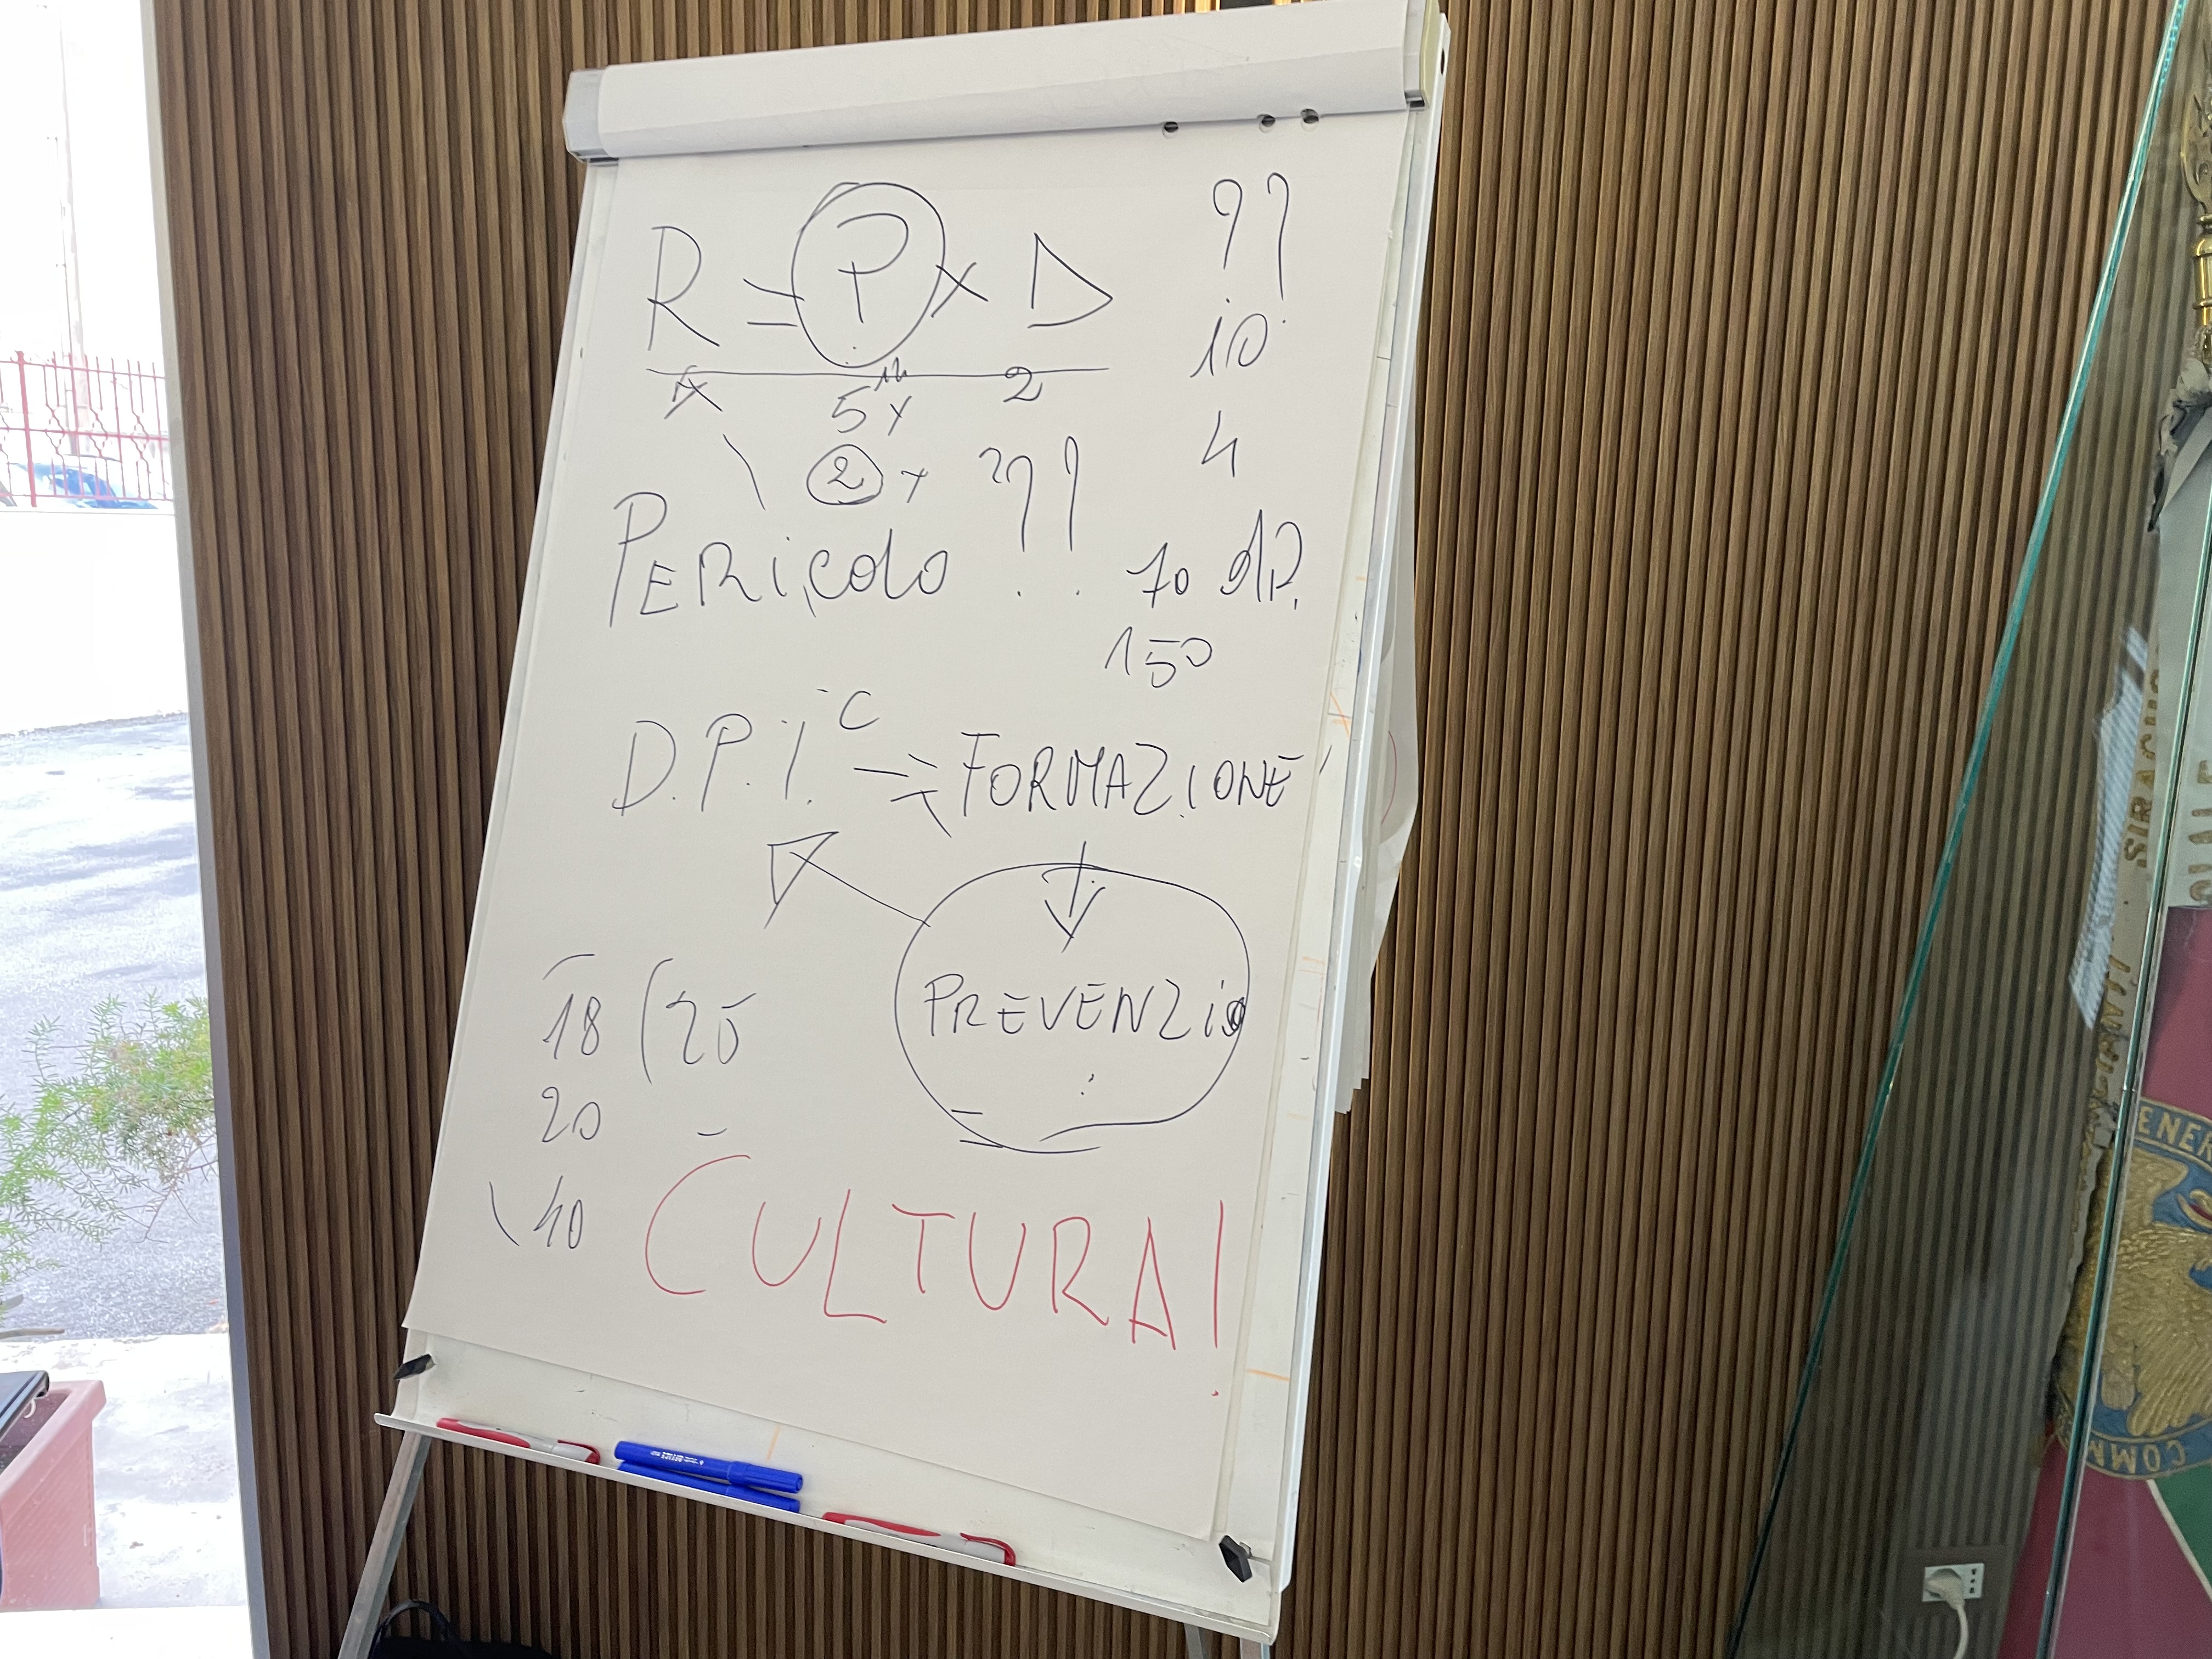 R = P x D ??
10
5 x 2
4
2 x ???
PERiCOLO
70 dP.
150
D.P.I. C => FORMAZIONE
PREVENZIO
18 (25
20
40
CULTURA!
SIRACUSA
ENER
COMM